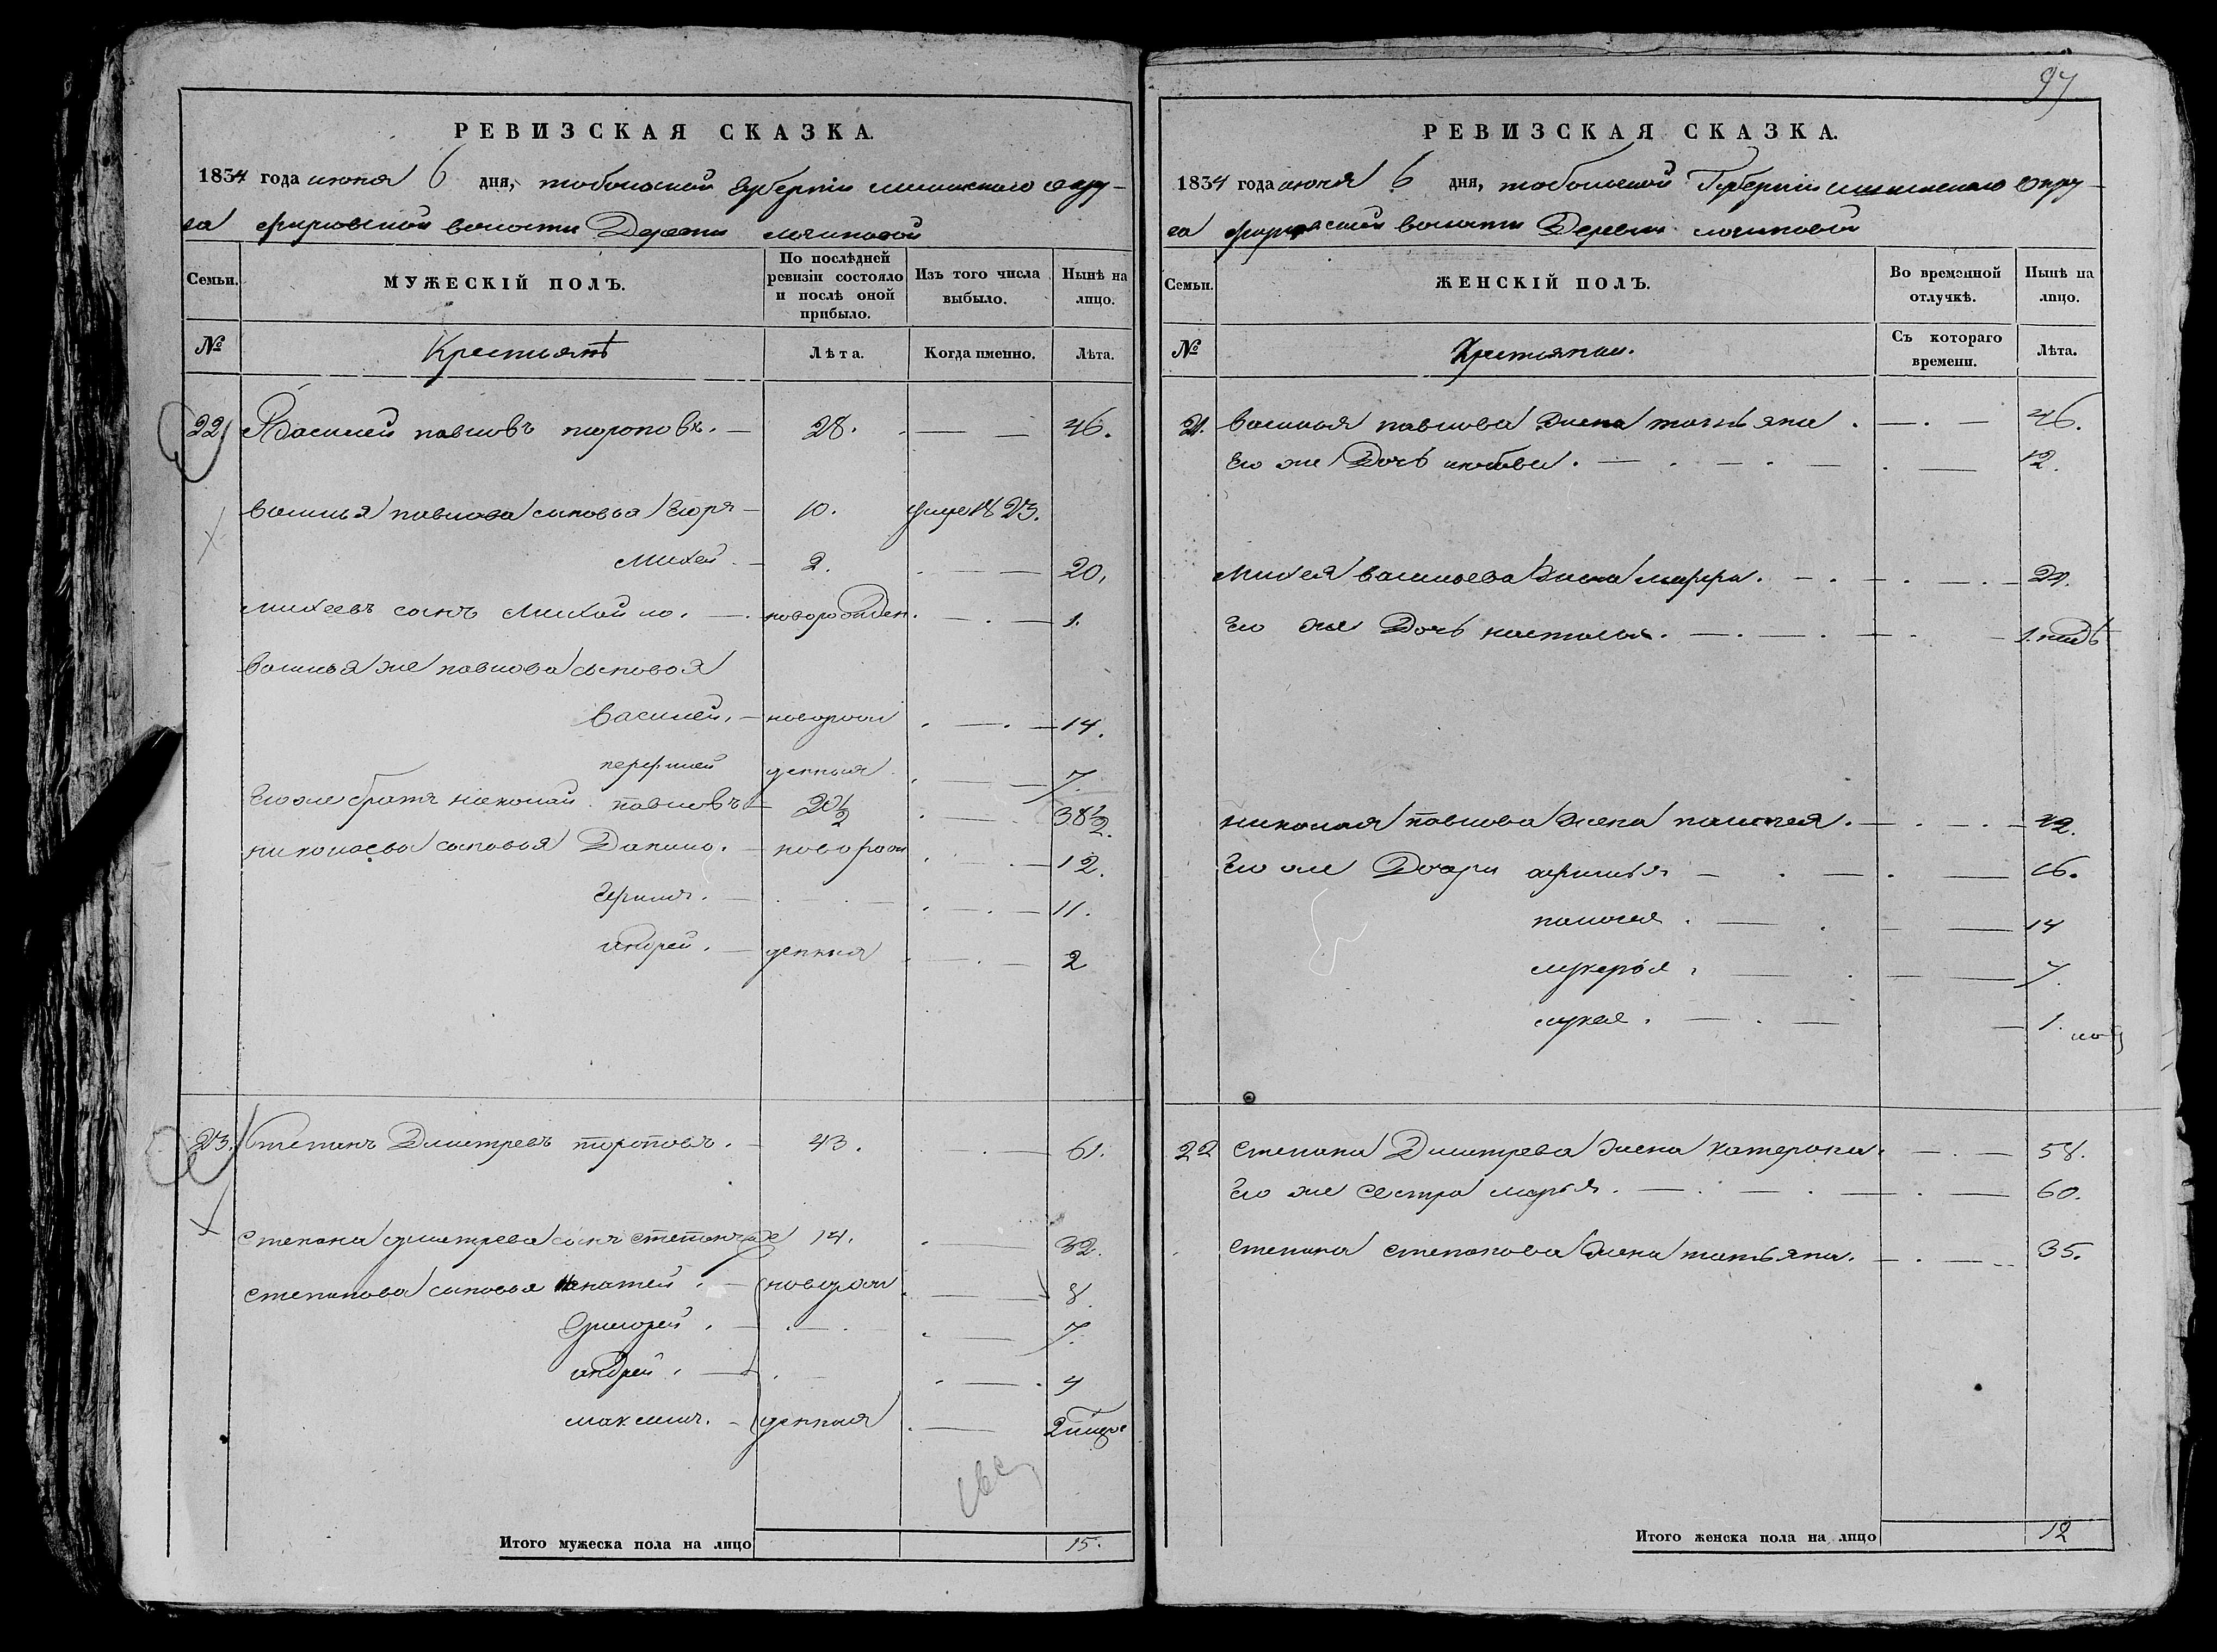 РЕВИЗСКАЯ СКАЗКА.
1834 года июня 6 дня, тобольской губернiи ишимского окру-
га фирсовской волости Деревни
Семьи. МУЖЕСКIЙ ПОЛЪ. По послѣдней ревизiи состояло и послѣ оной прибыло. Изъ того числа выбыло. Нынѣ на лицо.
№ Крестьянъ Лѣта. Когда именно. Лѣта.
22 Василей павловъ тороповъ. 28. 46.
василья павлова сыновья Егоръ 10. умре 1823.
михей 2. 20.
михеевъ сынъ михайло. новорожден. 1.
василья же павлова сыновья
василей. новорож 14.
перфилей денныя 7.
Его же братъ николай павловъ 20½ 38½.
николаева сыновья Данило. новорож 12.
11.
андрей. денныя 2
23. Степанъ Дмитревъ тороповъ. 43. 61.
степана дмитрева сынъ степанъ же 14. 32.
степанова сыновья новорож 8.
Григорей. 7.
андрей. 4
максимъ. денныя
Итого мужеска пола на лицо 15.
97
РЕВИЗСКАЯ СКАЗКА.
1834 года июня 6 дня, тобольской Губернiи ишимского окру-
га волости Деревни
Семьи. ЖЕНСКIЙ ПОЛЪ. Во временной отлучкѣ. Нынѣ на лицо.
№ Крестьянки. Съ котораго времени. Лѣта.
21. василья павлова жена татьяна. 46.
Его же Дочь любова. 12.
михея васильева жена марфа. 24.
Его же Дочь настасья. 1.
николая павлова жена палагея. 42.
Его же Дочери афимья 16.
палагея. 14
лукерья. 7.
1.
22 степана Дмитрева жена катерина. 58.
Его же сестра марья. 60.
степана степанова жена татьяна. 35.
Итого женска пола на лицо 12